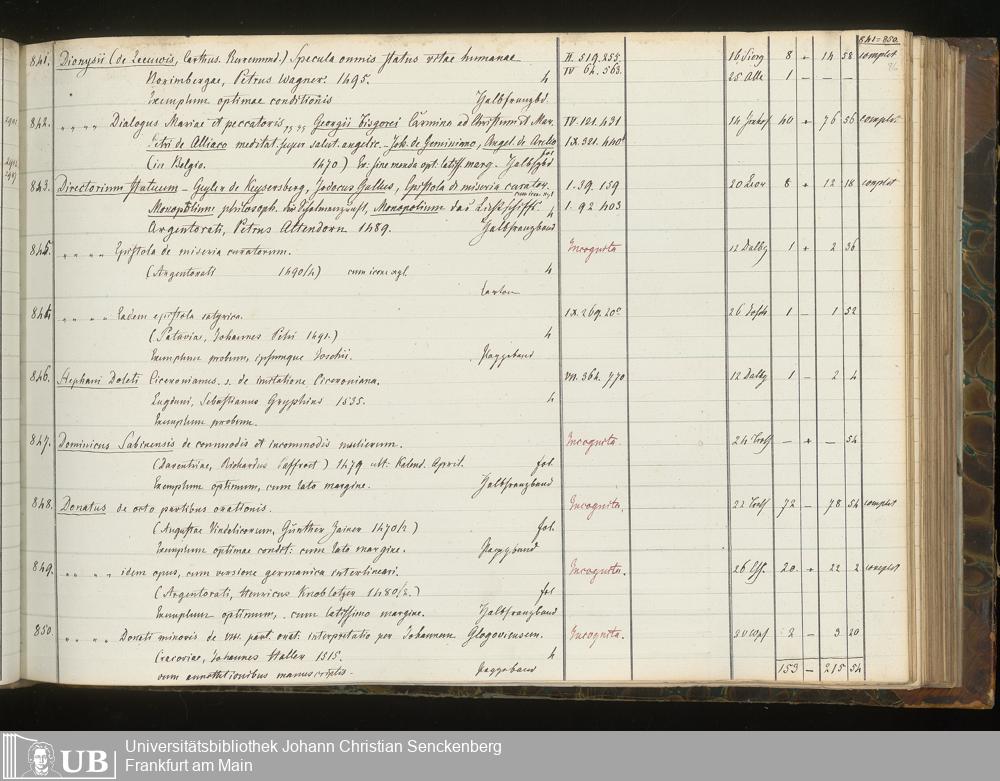 841-850.
841. Dionysii (de Leeuwis, Carthus. Ruremund.) Specula omnis status vitae humanae II. 519. 255. 8 + 14 58 complet
Norimbergae, Petrus Wagner. 1495. 4 IV 64. 563. 1 — — —
Exemplum optimae conditionis Halbfranzbd.
842. " " " Dialogus Mariae et peccatoris, Georgii Bisgorei Carmina ad Christum et Mar. IV. 121. 431 40 + 76 56 complet
Petri de Alliaco meditat. super salut. angelic. - Joh. de Geminiano, IX. 321. 440
(in Belgio. 1470) Ex. sine menda opt. latiss. marg. fol. Halbfzbd
843. Directorium statuum - Geyler de Keysersberg, Jodocus Gallus, Epistola de miseria curator. 1. 39. 159 8 + 12 18 complet
Monopolium philosoph. Monopolium das Lichtschiff. 4 1. 92 403
Argentorati, Petrus Attendorn 1489. Halbfranzband
844. " " " Epistola de miseria curatorum. Incognita 12 Dalbg 1 + 2 36
(Argentorati 1490/4) cum icone xyl. 4
Carton
845. " " " Eadem epistola satyrica. IX. 269. 200 1 — 1 52
(Patavia, Johannes Petri 1491.) 4
Exemplum probum, Pappeband
846. Stephani Doleti Ciceronianus. s. de imitatione Ciceroniana. VII. 364. 770 12 Dalbg 1 — 2 4
Lugduni, Sebastianus Gryphius 1535. 4
Exemplum probum.
847. Dominicus Sabinensis de commodis et incommodis mulierum. Incognita. — + — 54
(Daventriae, Richardus Paffroet) 1479 ult: Kalend. April. fol.
Exemplum optimum, cum lato margine. Halbfranzband
848. Donatus de octo partibus orationis. Incognita. 72 — 78 54 complet
(Augustae Vindelicorum, Günther Zainer 1470/2) fol.
Exemplum optimae condit: cum lato margine. Pappband
849. " " " idem opus, cum versione germanica interlineari. Incognita. 20. + 22 2 complet
(Argentorati, Henricus Knoblotzer 1480/2.) fol
Exemplum optimum, cum latissimo margine. Halbfranzband
850. " " " Donati minoris de VIII. part. orat: interpretatio per Johannem Glogoviensem. Incognita. 2 — 3 20
Cracoviae, Johannes Haller 1515. 4
cum annotationibus manuscriptis. Pappeband 153 — 215 54
UB
Universitätsbibliothek Johann Christian Senckenberg
Frankfurt am Main